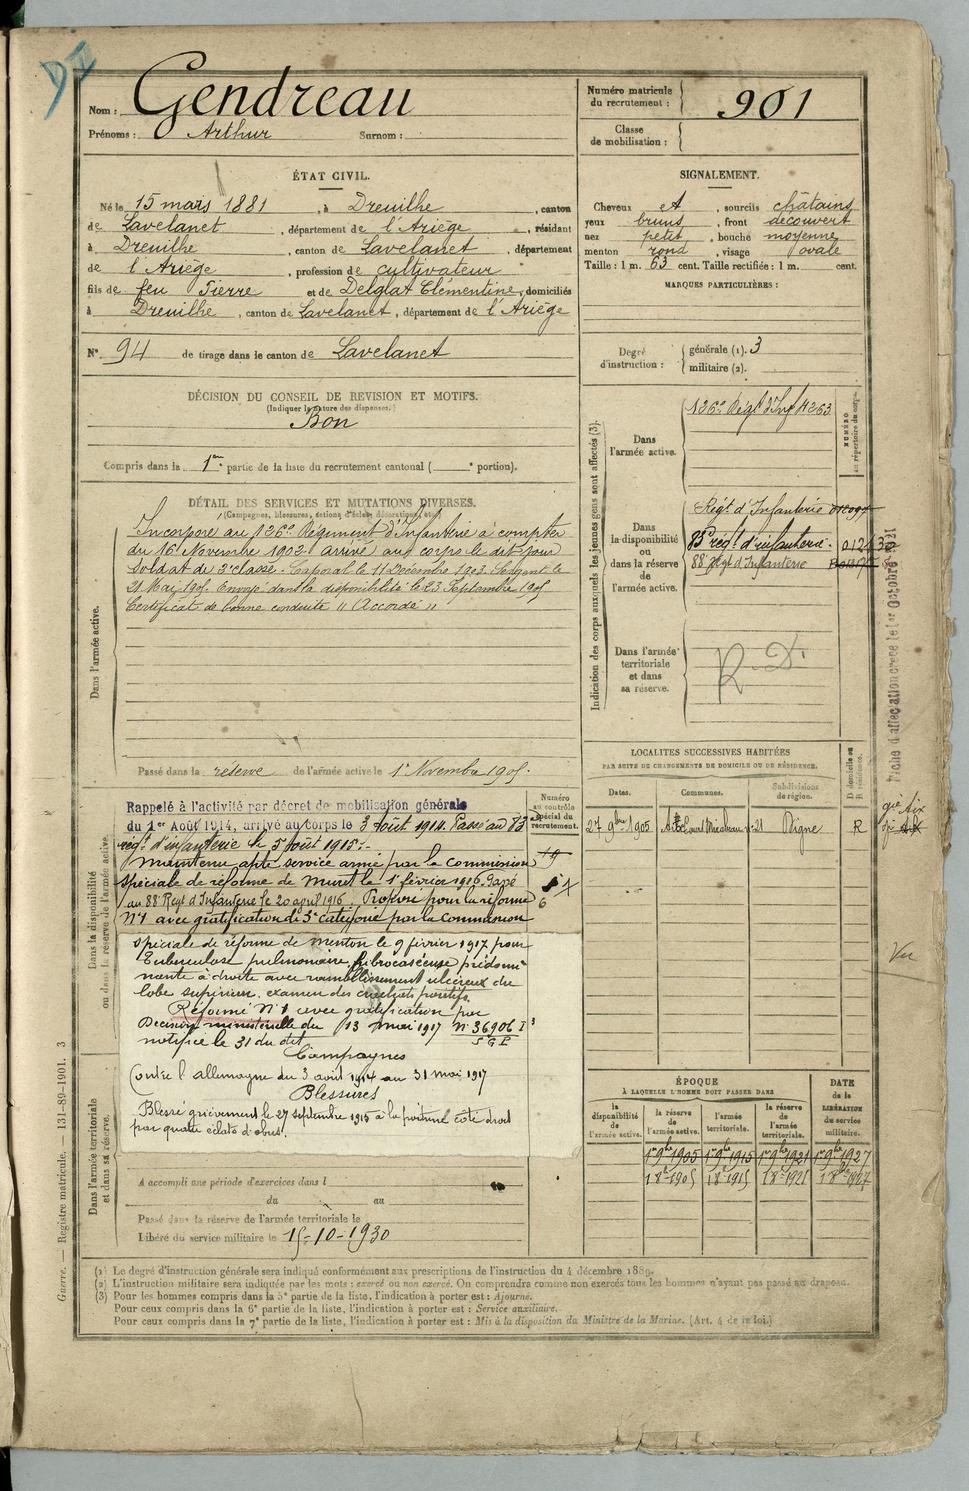 Nom : Gendreau
Prénoms : Arthur Surnom :
Numéro matricule du recrutement : 901
Classe de mobilisation :
ÉTAT CIVIL.
Né le 15 mars 1881, à Dreuilhe, canton
de Lavelanet, département de l'Ariège, résidant
à Dreuilhe, canton de Lavelanet, département
de l'Ariège, profession de cultivateur
fils de feu Pierre et de Delglat Clémentine, domiciliés
à Dreuilhe, canton de Lavelanet, département de l'Ariège
N° 94 de tirage dans le canton de Lavelanet
SIGNALEMENT.
Cheveux et, sourcils châtains
yeux bruns, front découvert
nez petit, bouche moyenne
menton rond, visage ovale
Taille : 1 m. 63 cent. Taille rectifiée : 1 m. cent.
MARQUES PARTICULIÈRES :
Degré d'instruction : générale (1). 3
militaire (2).
DÉCISION DU CONSEIL DE REVISION ET MOTIFS.
(Indiquer la nature des dispenses.)
Bon
Compris dans la 1re partie de la liste du recrutement cantonal ( e portion).
DÉTAIL DES SERVICES ET MUTATIONS DIVERSES.
(Campagnes, blessures, actions d'éclat, décorations, etc.)
Dans l'armée active.
Incorporé au 126e Régiment d'Infanterie à compter
du 16 Novembre 1902. Arrivé au corps le dit jour
Soldat de 2e classe. Caporal le 11 Décembre 1903. Sergent le
21 Mai 1905. Envoyé dans la disponibilité le 23 Septembre 1905
Certificat de bonne conduite "Accordé"
Passé dans la réserve de l'armée active le 1er Novembre 1905.
Indication des corps auxquels les jeunes gens sont affectés (3).
Dans l'armée active.
126e Régt d'Inf 4263
NUMÉRO au répertoire du corps.
Dans la disponibilité ou dans la réserve de l'armée active.
Régt d'Infanterie
83 régt d'infanterie.
88 Régt d'Infanterie
Dans l'armée territoriale et dans sa réserve.
R. D.
Fiche d'affectation créée le 1er Octobre 1921
LOCALITÉS SUCCESSIVES HABITÉES
PAR SUITE DE CHANGEMENTS DE DOMICILE OU DE RÉSIDENCE.
Dates. Communes. Subdivisions de région. D domicile ou R résidence.
27 9bre 1905 Aix Cours Mirabeau n° 21 Digne R
Aix
Vu
Dans la disponibilité ou dans la réserve de l'armée active.
Numéro au contrôle spécial du recrutement.
Rappelé à l'activité par décret de mobilisation générale
du 1er Août 1914, arrivé au corps le 3 août 1914. Passé au 83
régt d'infanterie le 5 août 1915.
Maintenu apte service armé par la Commission
spéciale de réforme de Muret le 1er février 1916. Passé
au 88 Régt d'Infanterie le 20 avril 1916. Proposé pour la réforme
N°1 avec gratification de 3e catégorie par la Commission
spéciale de réforme de Menton le 9 février 1917 pour
Tuberculose pulmonaire fibrocaséeuse prédomi-
nante à droite avec ramollissement ulcéreux du
lobe supérieur. examen des crachats positifs.
Réformé N°1 avec gratification par
Décision ministérielle du 13 mai 1917 N° 36906 I 3
S G P
notifiée le 31 du dit
Campagnes
Contre l'allemagne du 3 août 1914 au 31 mai 1917
Blessures
Blessé grièvement le 27 septembre 1915 à la poitrine côté droit
par quatre éclats d'obus.
Dans l'armée territoriale et dans sa réserve.
A accompli une période d'exercices dans l
du au
Passé dans la réserve de l'armée territoriale le
Libéré du service militaire le 15-10-1930
ÉPOQUE
À LAQUELLE L'HOMME DOIT PASSER DANS
la disponibilité de l'armée active. la réserve de l'armée active. l'armée territoriale. la réserve de l'armée territoriale. DATE de la LIBÉRATION du service militaire.
1er 9bre 1905 1er 9bre 1915 1er 9bre 1921 1er 9bre 1927
1 8bre 1905 1 8bre 1915 1 8bre 1921 1 8bre 1927
(1) Le degré d'instruction générale sera indiqué conformément aux prescriptions de l'instruction du 4 décembre 1889.
(2) L'instruction militaire sera indiquée par les mots : exercé ou non exercé. On comprendra comme non exercés tous les hommes n'ayant pas passé au drapeau.
(3) Pour les hommes compris dans la 5e partie de la liste, l'indication à porter est : Ajourné.
Pour ceux compris dans la 6e partie de la liste, l'indication à porter est : Service auxiliaire.
Pour ceux compris dans la 7e partie de la liste, l'indication à porter est : Mis à la disposition du Ministre de la Marine. (Art. 4 de la loi.)
Guerre. — Registre matricule. — 131-89-1901. 3